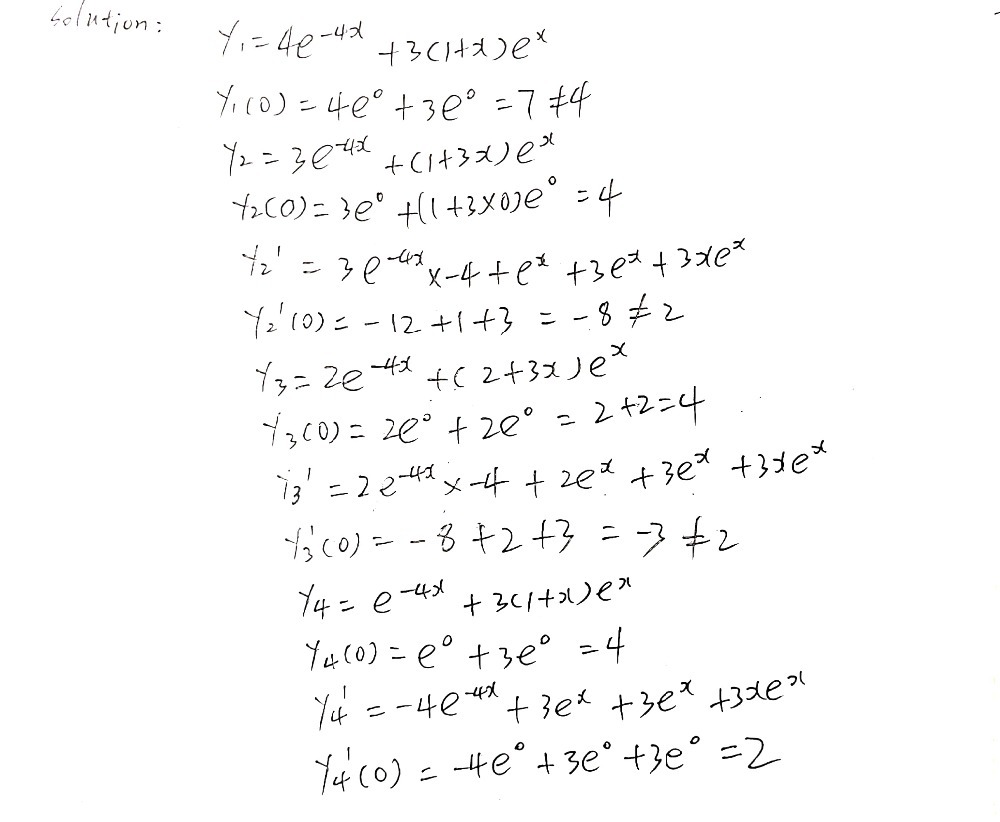 Solution:
Y₁ = 4e^(-4x) + 3(1+x)e^x
Y₁(0) = 4e⁰ + 3e⁰ = 7 ≠ 4
Y₂ = 3e^(-4x) + (1+3x)e^x
Y₂(0) = 3e⁰ + (1+3×0)e⁰ = 4
Y₂' = 3e^(-4x) × -4 + e^x + 3e^x + 3xe^x
Y₂'(0) = -12 + 1 + 3 = -8 ≠ 2
Y₃ = 2e^(-4x) + (2+3x)e^x
Y₃(0) = 2e⁰ + 2e⁰ = 2+2=4
Y₃' = 2e^(-4x) × -4 + 2e^x + 3e^x + 3xe^x
Y₃'(0) = -8 + 2 + 3 = -3 ≠ 2
Y₄ = e^(-4x) + 3(1+x)e^x
Y₄(0) = e⁰ + 3e⁰ = 4
Y₄' = -4e^(-4x) + 3e^x + 3e^x + 3xe^x
Y₄'(0) = -4e⁰ + 3e⁰ + 3e⁰ = 2